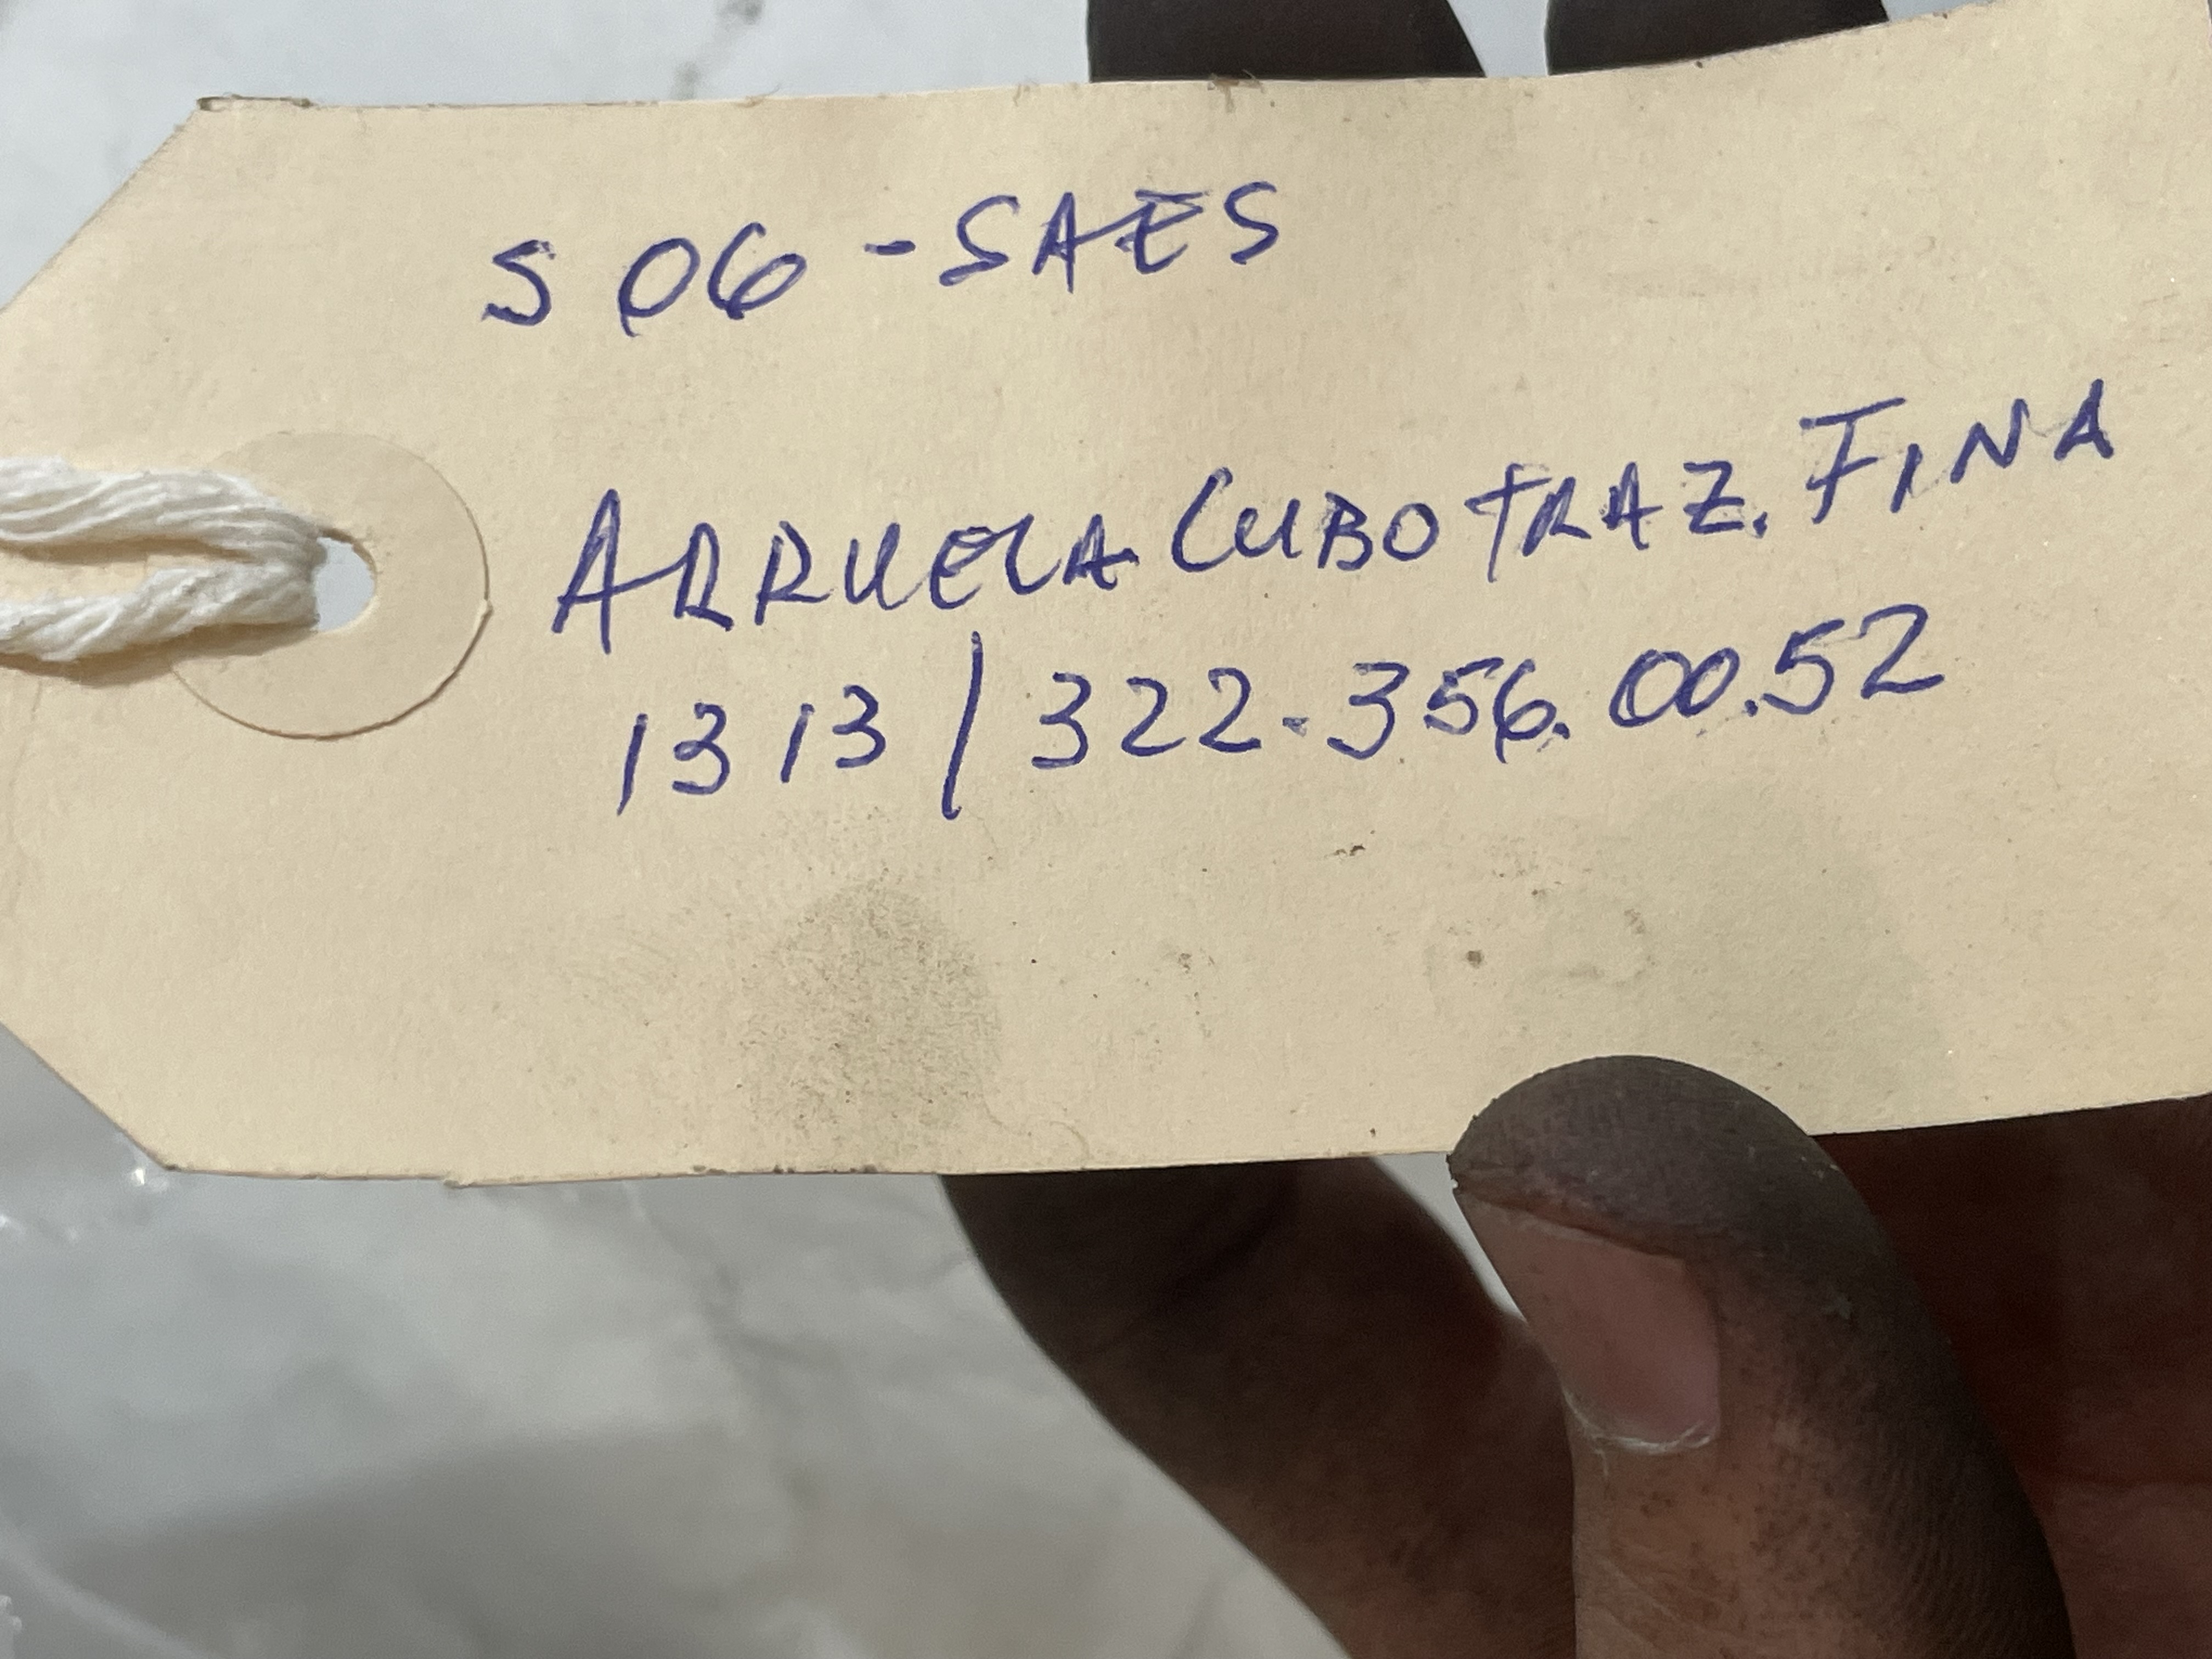 506-SAES
ARRUELA CUBO TRAZ. FINA
1313/322.356.00.52